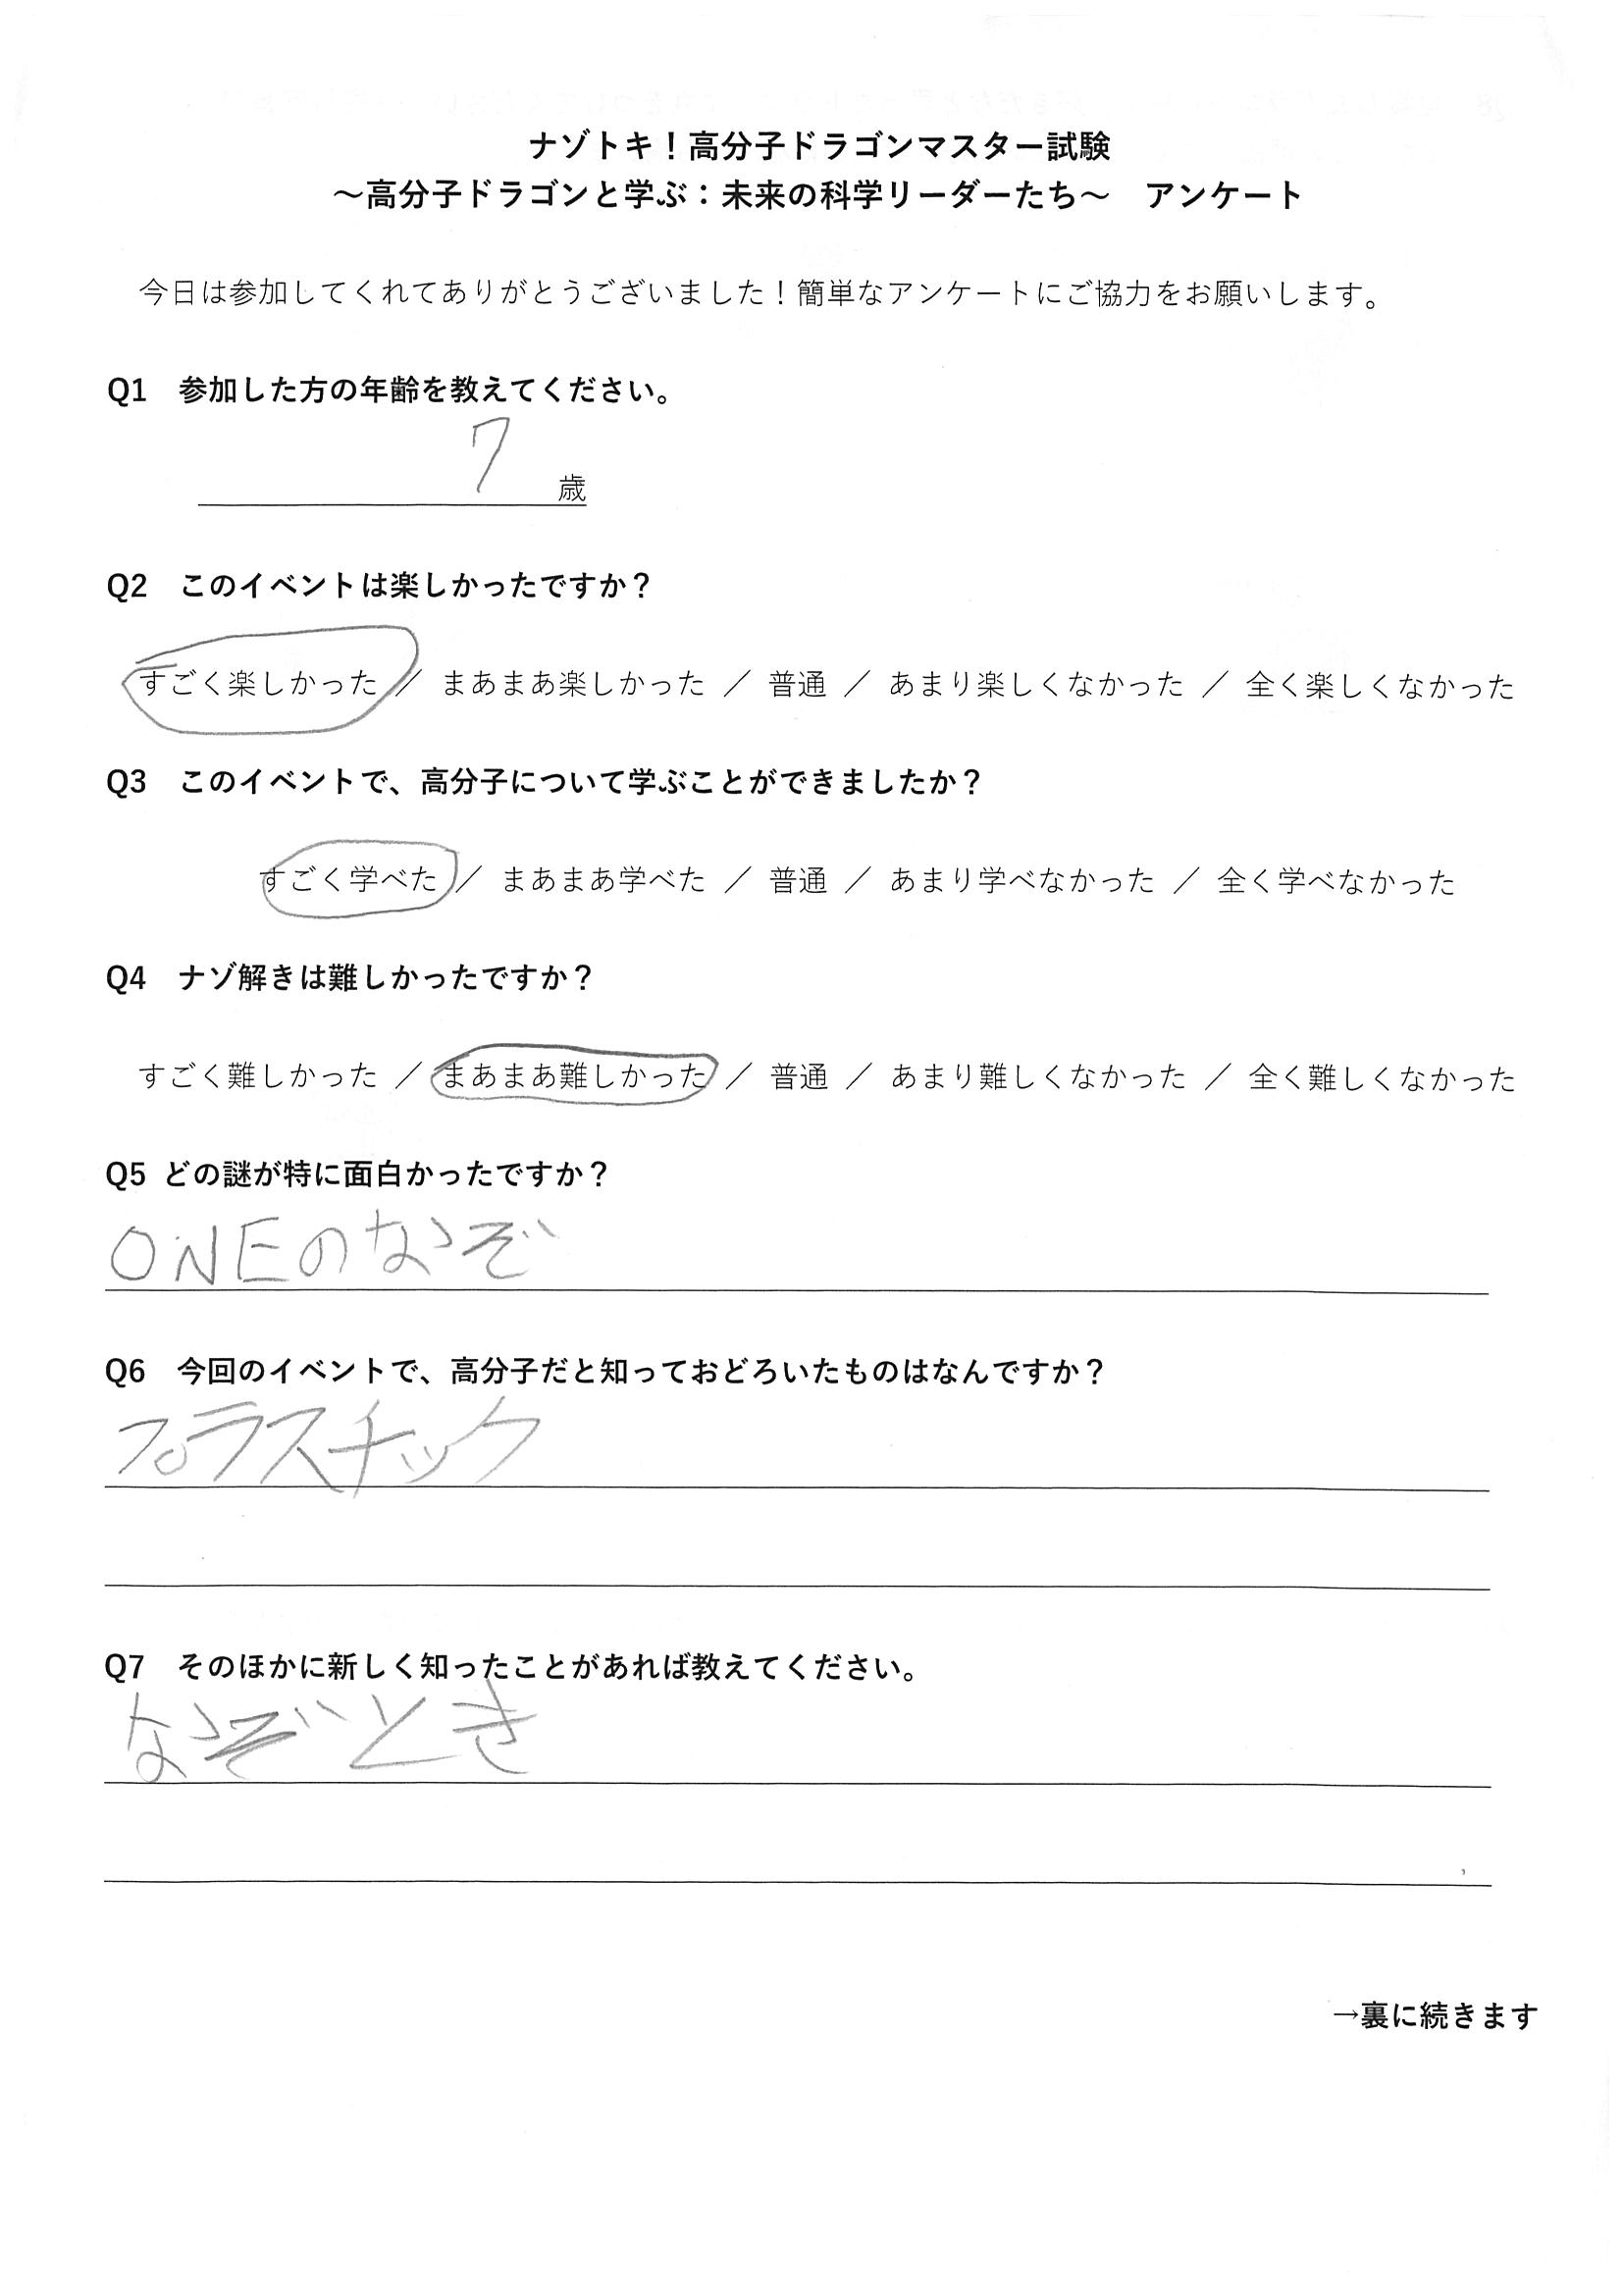 ナゾトキ！高分子ドラゴンマスター試験
～高分子ドラゴンと学ぶ：未来の科学リーダーたち～　アンケート
今日は参加してくれてありがとうございました！簡単なアンケートにご協力をお願いします。
Q1　参加した方の年齢を教えてください。
7 歳
Q2　このイベントは楽しかったですか？
すごく楽しかった ／ まあまあ楽しかった ／ 普通 ／ あまり楽しくなかった ／ 全く楽しくなかった
Q3　このイベントで、高分子について学ぶことができましたか？
すごく学べた ／ まあまあ学べた ／ 普通 ／ あまり学べなかった ／ 全く学べなかった
Q4　ナゾ解きは難しかったですか？
すごく難しかった ／ まあまあ難しかった ／ 普通 ／ あまり難しくなかった ／ 全く難しくなかった
Q5 どの謎が特に面白かったですか？
ONEのなぞ
Q6　今回のイベントで、高分子だと知っておどろいたものはなんですか？
プラスチック
Q7　そのほかに新しく知ったことがあれば教えてください。
なぞとき
→裏に続きます